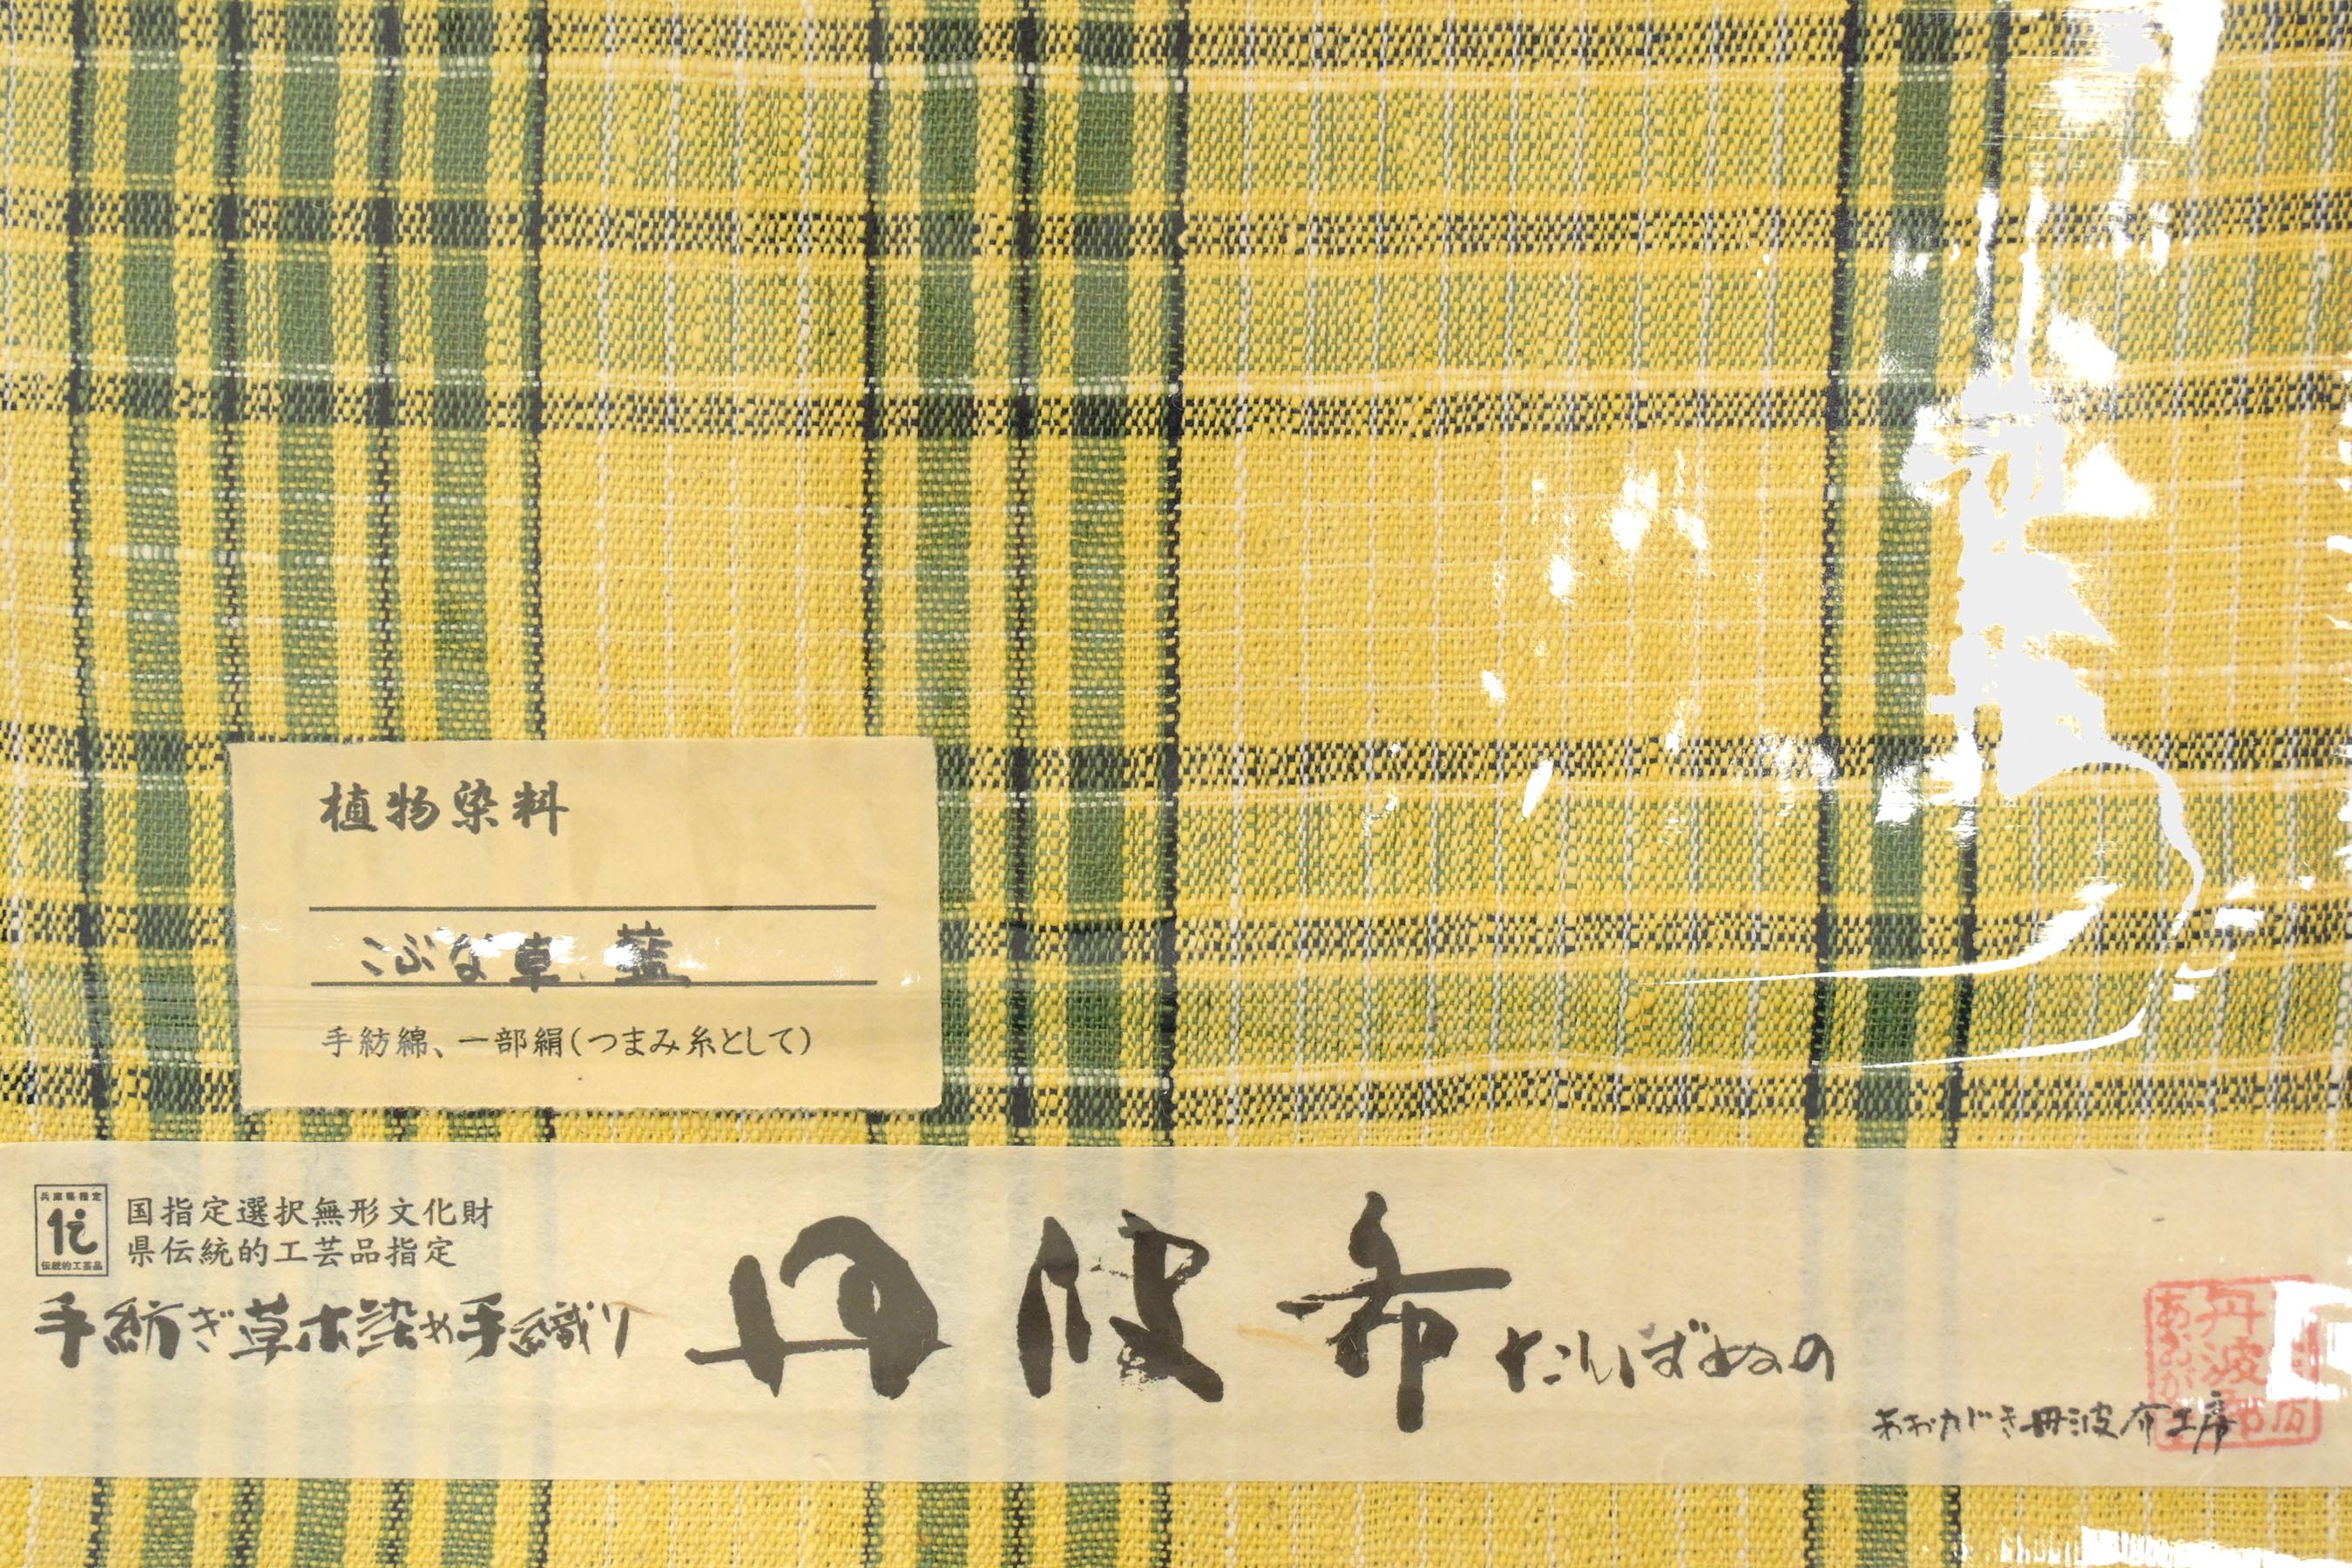 植物染料
こぶな草 藍
手紡綿、一部絹(つまみ糸として)
兵庫県指定
伝統的工芸品
国指定選択無形文化財
県伝統的工芸品指定
手紡ぎ草木染め手織り
丹波布
たんばぬの
あおがき丹波布工房